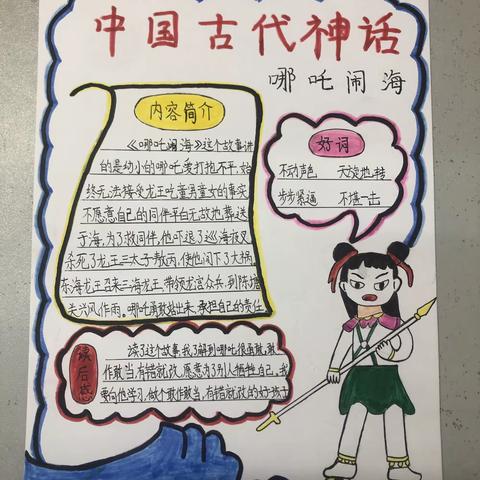 中国古代神话
哪吒闹海
内容简介
《哪吒闹海》这个故事讲
的是幼小的哪吒,爱打抱不平,始
终无法接受龙王吃童男童女的事实
不愿意自己的同伴平白无故地葬送
于海,为了救同伴,他吓退了巡海夜叉
杀死了龙王三太子敖丙,使他闯下了大祸,
东海龙王召来三海龙王,带领龙宫众兵,到陈塘
关兴风作雨。哪吒勇敢站出来,承担自己的责任
好词
不动声色 天旋地转
步步紧逼 不堪一击
读后感
读了这个故事,我了解到哪吒很勇敢,敢
作敢当,有错就改,愿意为了别人牺牲自己,我
要向他学习,做个敢作敢当,有错就改的好孩子